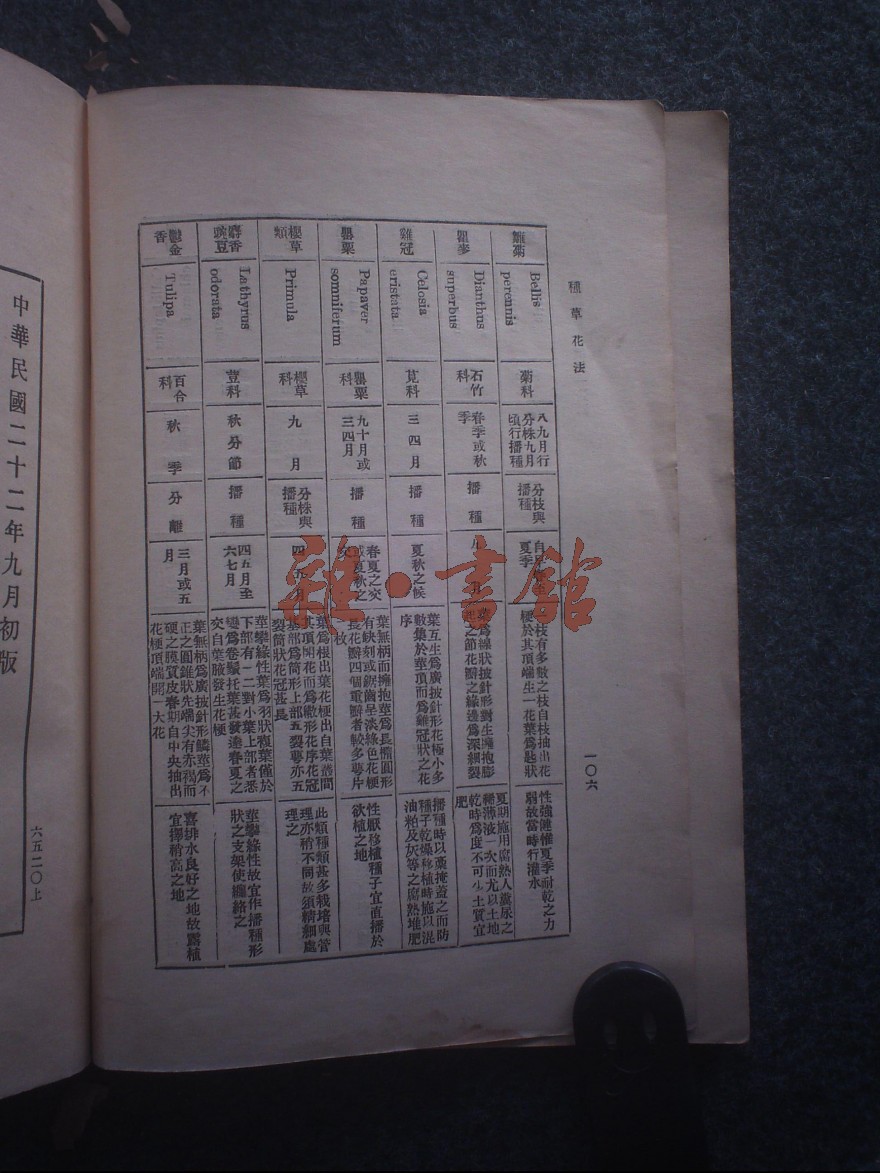 種草花法
一〇六
雛菊
Bellis
perennis
菊科
八九月行
分株九月
頃行播種
分枝與
播種
夏季
枝有多數之枝自枝抽出花
梗於其頂端生一花葉爲匙狀
性強健惟夏季耐乾之力
弱故當時行灌水
瞿麥
Dianthus
superbus
石竹
科
春季或秋
季
播種
葉爲線狀披針形對生擁抱膨
之節花瓣之緣邊爲深細裂
夏期施用腐熟人糞尿之
稀薄液一次而尤以土地
乾時爲度不可少土質宜
肥
雞冠
Celosia
cristata
莧科
三四月
播種
夏秋之候
葉互生爲廣披針形花極小多
數集於莖頂而爲雞冠狀之花
序
播種時以藁掩蓋之而防
種子乾燥移植時施以混
油粕及灰等之腐熟堆肥
罌粟
Papaver
somniferum
罌粟
科
九十月或
三四月
播種
春夏之交
或夏秋之
交
葉無柄而擁抱莖爲長橢圓形
有缺刻或鋸齒呈淡綠色花梗
長花瓣四個重瓣者較多萼片
二枚
性厭移植種子宜直播於
欲植之地
櫻草
類
Primula
櫻草
科
九月
分株與
播種
四五月
葉爲根出葉花梗出自葉叢間
其頂開花而爲繖形花序花冠
基部爲筒形上部五裂萼亦五
裂筒狀花冠甚長
此類種類甚多栽培與管
理亦稍不同故須精細處
理之
麝香
豌豆
Lathyrus
odorata
荳科
秋分節
播種
四五月至
六七月
莖攀緣性葉爲羽狀複葉僅於
下部有一二對小葉上部者悉
變爲卷鬚托葉甚發達春夏之
交自葉腋發生花梗
莖攀緣性故宜作播種形
狀之支架使纏絡之
鬱金
香
Tulipa
百合
科
秋季
分離
三月或五
月
葉無柄爲廣披針形鱗莖爲不
正之圓錐狀先端尖有赤褐而
硬之膜質皮春期自中央抽出
花梗頂端開一大花
喜排水良好之地故露植
宜擇稍高之地
中華民國二十二年九月初版
六五二〇上
雜·書館